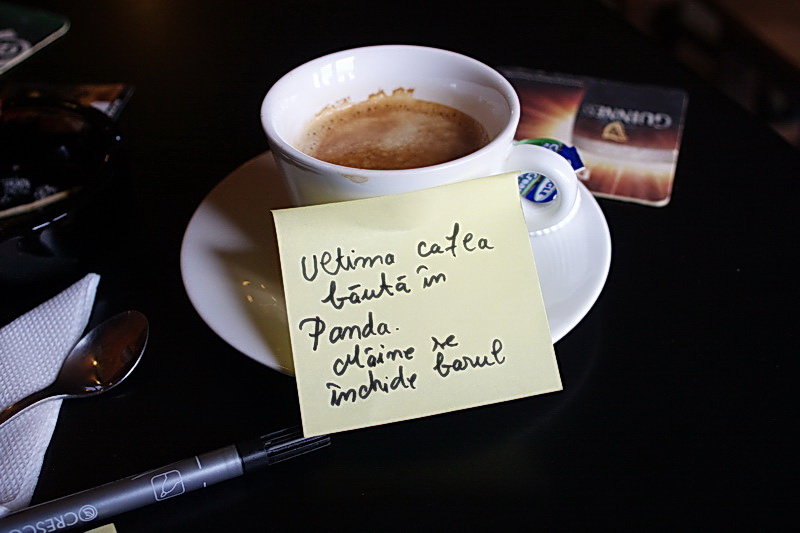 GUINNESS
Ultima cafea
băută în
Panda.
Mâine se
închide barul
CRESCO